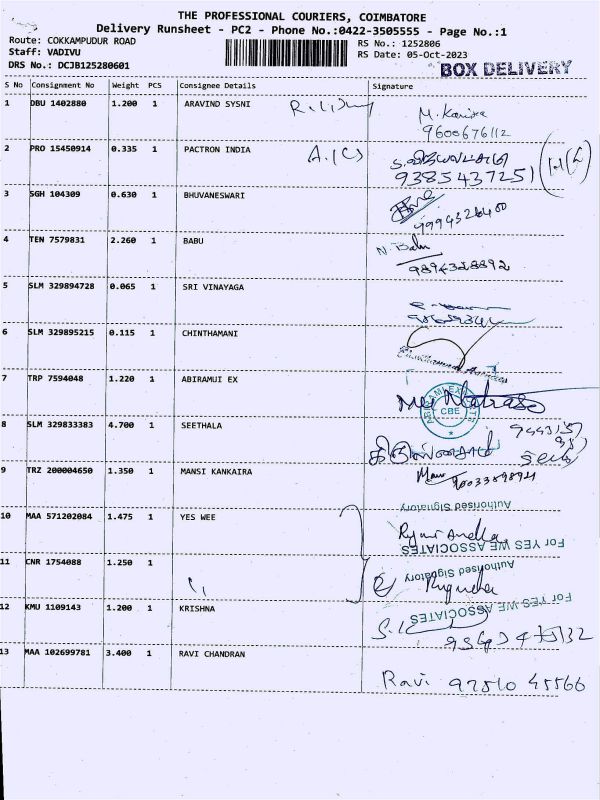 THE PROFESSIONAL COURIERS, COIMBATORE
Delivery Runsheet - PC2 - Phone No.:0422-3505555 - Page No.:1
Route: COKKAMPUDUR ROAD
RS No.: 1252806
Staff: VADIVU
RS Date: 05-Oct-2023
DRS No.: DCJB125280601
BOX DELIVERY
S No Consignment No Weight PCS Consignee Details Signature
1 DBU 1402880 1.200 1 ARAVIND SYSNI
9600676112
2 PRO 15450914 0.335 1 PACTRON INDIA
9385437251
3 SGH 104309 0.630 1 BHUVANESWARI
9994326400
4 TEN 7579831 2.260 1 BABU N. Babu
9894328892
5 SLM 329894728 0.065 1 SRI VINAYAGA
6 SLM 329895215 0.115 1 CHINTHAMANI
7 TRP 7594048 1.220 1 ABIRAMUI EX
CBE
8 SLM 329833383 4.700 1 SEETHALA
9 TRZ 200004650 1.350 1 MANSI KANKAIRA
Authorised Signatory
10 MAA 571202084 1.475 1 YES WEE
For YES WE ASSOCIATES
11 CNR 1754088 1.250 1
Authorised Signatory
For YES WE ASSOCIATES
12 KMU 1109143 1.200 1 KRISHNA
13 MAA 102699781 3.400 1 RAVI CHANDRAN
Ravi 97510 45566